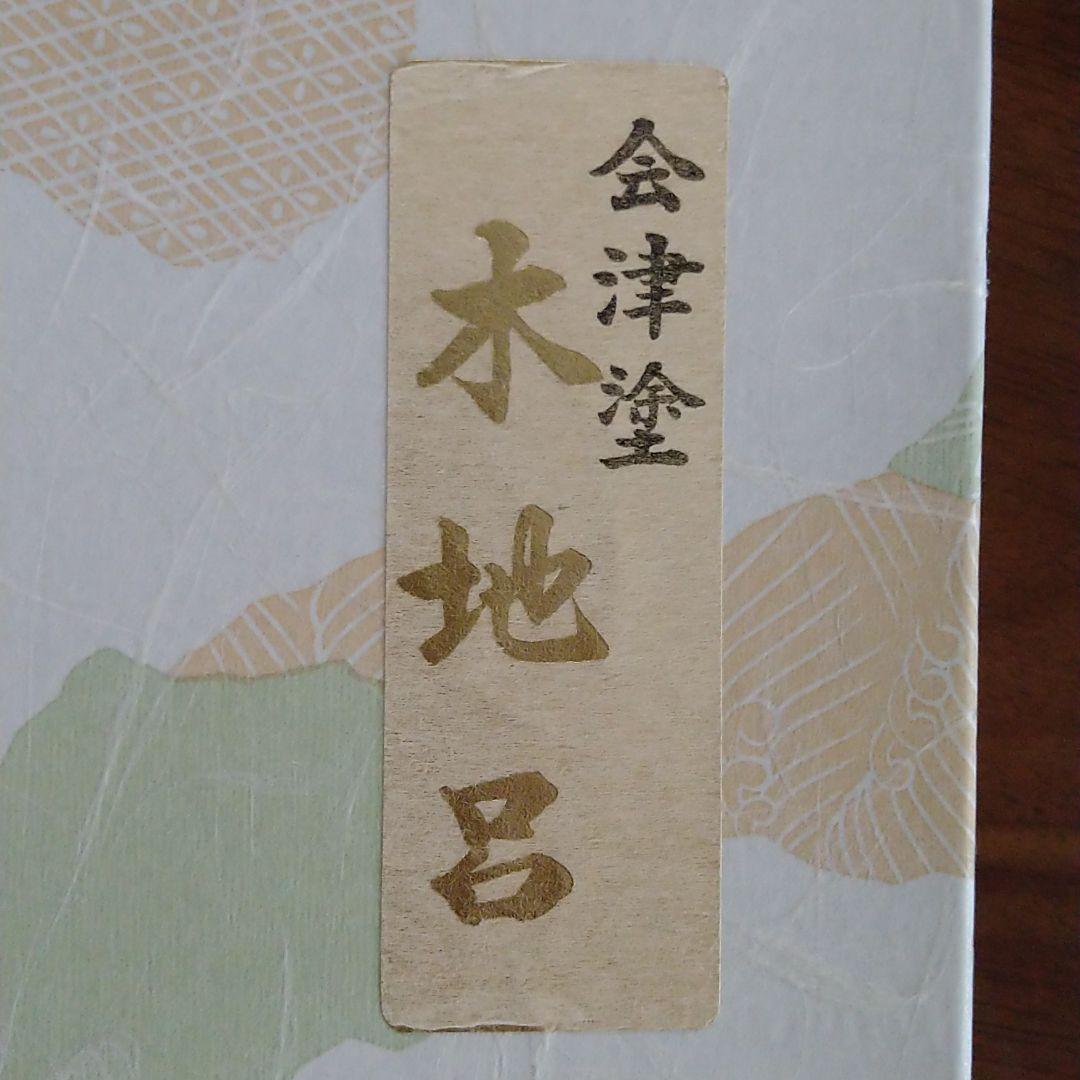 会津塗
木地呂